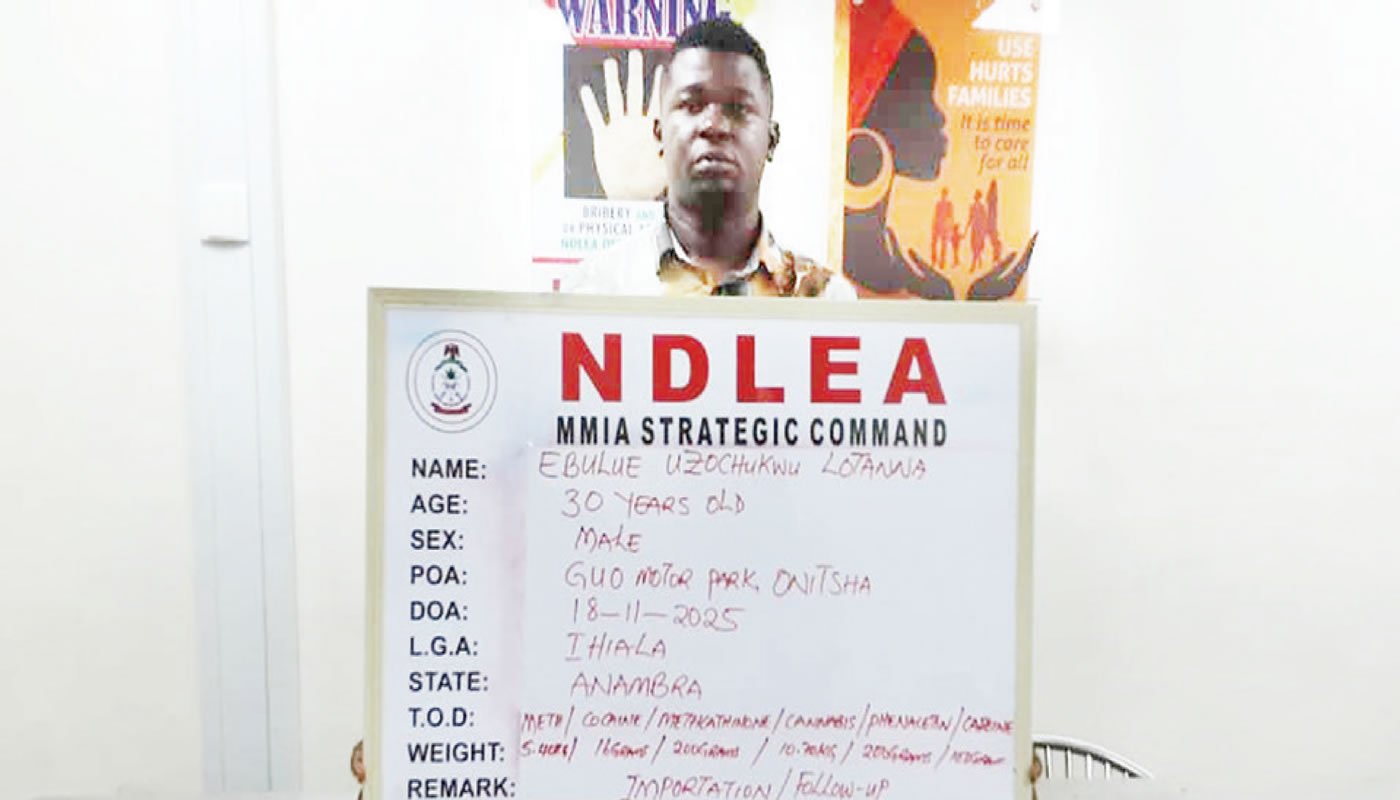 WARNING
USE
HURTS
FAMILIES
It is time
to care
for all
BRIBERY AND
OR PHYSICAL
NDLEA
NDLEA
MMIA STRATEGIC COMMAND
NAME: EBULUE UZOCHUKWU LOTANNA
AGE: 30 YEARS OLD
SEX: MALE
POA: GUO MOTOR PARK, ONITSHA
DOA: 18-11-2025
L.G.A: IHIALA
STATE: ANAMBRA
T.O.D: METH/ COCAINE/ METHCATHINONE/ CANNABIS/ PHENACETIN/ CAFFEINE
WEIGHT: 16GRAMS/ 200GRAMS / 10.70KG/ 200GRAMS/
REMARK: IMPORTATION/ FOLLOW-UP